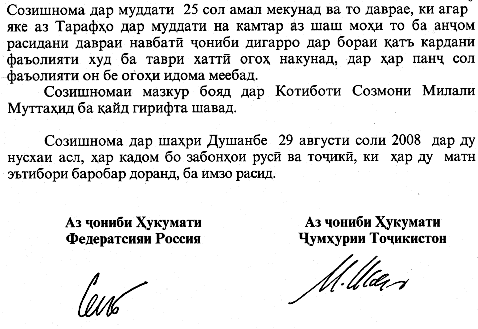 Созишнома дар муддати 25 сол амал мекунад ва то даврае, ки агар
яке аз Тарафҳо дар муддати на камтар аз шаш моҳи то ба анҷом
расидани давраи навбатӣ ҷониби дигарро дар бораи қатъ кардани
фаъолияти худ ба таври хаттӣ огоҳ накунад, дар ҳар панҷ сол
фаъолияти он бе огоҳи идома меебад.
Созишномаи мазкур бояд дар Котиботи Созмони Милали
Муттаҳид ба қайд гирифта шавад.
Созишнома дар шаҳри Душанбе 29 августи соли 2008 дар ду
нусхаи асл, ҳар кадом бо забонҳои русӣ ва тоҷикӣ, ки ҳар ду матн
эътибори баробар доранд, ба имзо расид.
Аз ҷониби Ҳукумати
Федератсияи Россия
Аз ҷониби Ҳукумати
Ҷумҳурии Тоҷикистон